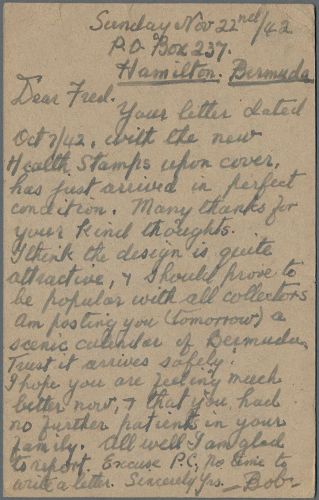 Sunday Nov 22nd/42
P.O Box 237.
Hamilton. Bermuda
Dear Fred.
Your letter dated
Oct 7/42, with the new
Health Stamps upon cover,
has just arrived in perfect
condition. Many thanks for
your kind thoughts.
I think the design is quite
attractive, & should prove to
be popular with all collectors
Am posting you (tomorrow) a
scenic calendar of Bermuda,
Trust it arrives safely.
I hope you are feeling much
better now, & that you had
no further patients in your
family. All well I am glad
to report. Excuse P.C, no time to
write a letter. Sincerely Yrs. —Bob—